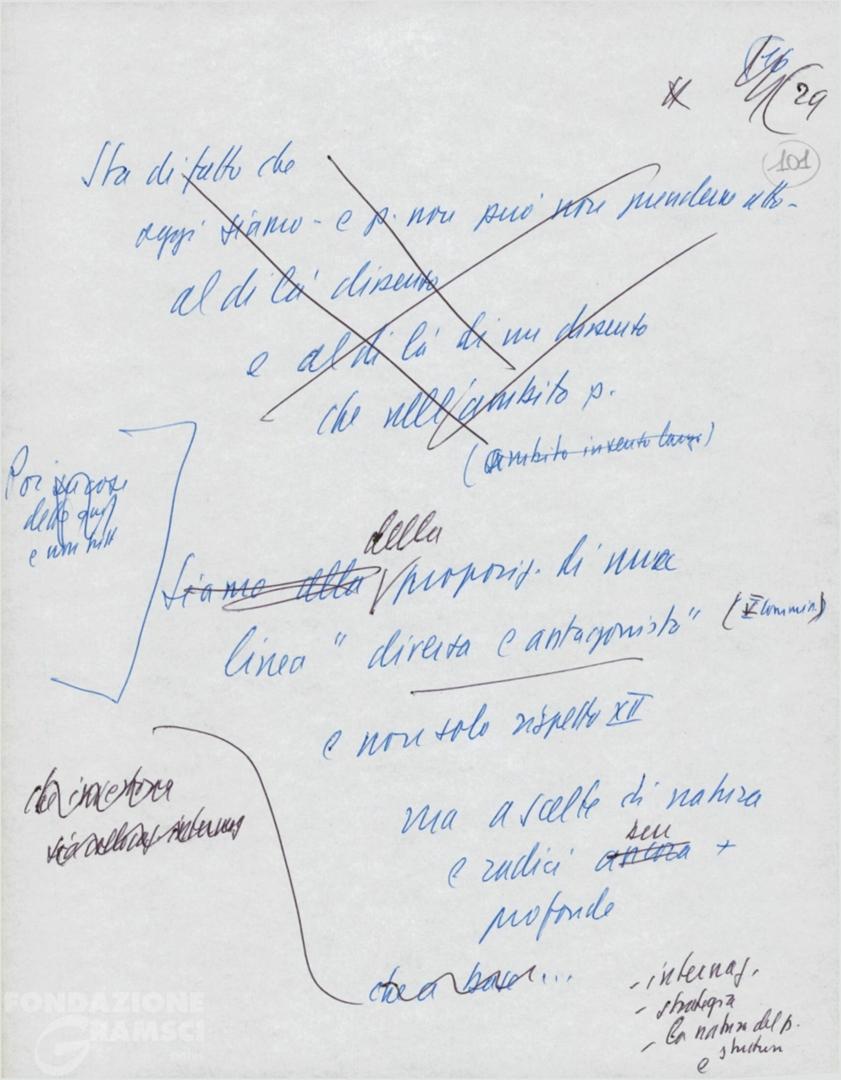 29
101
Sta di fatto che
oggi siamo - e p. non può non prendere atto -
al di là dissento
e al di là di un dissento
che nell'ambito p.
(ambito
Poi
delle
e non
della
Siamo alla proposiz. di una
linea "diversa e antagonista"
e non solo rispetto XII
ma a scelte di natura
ben
e radici ancora +
profonde
che investono
sia
che a base...
- internaz.
- strategia
- la natura del p.
e struttura
FONDAZIONE
GRAMSCI